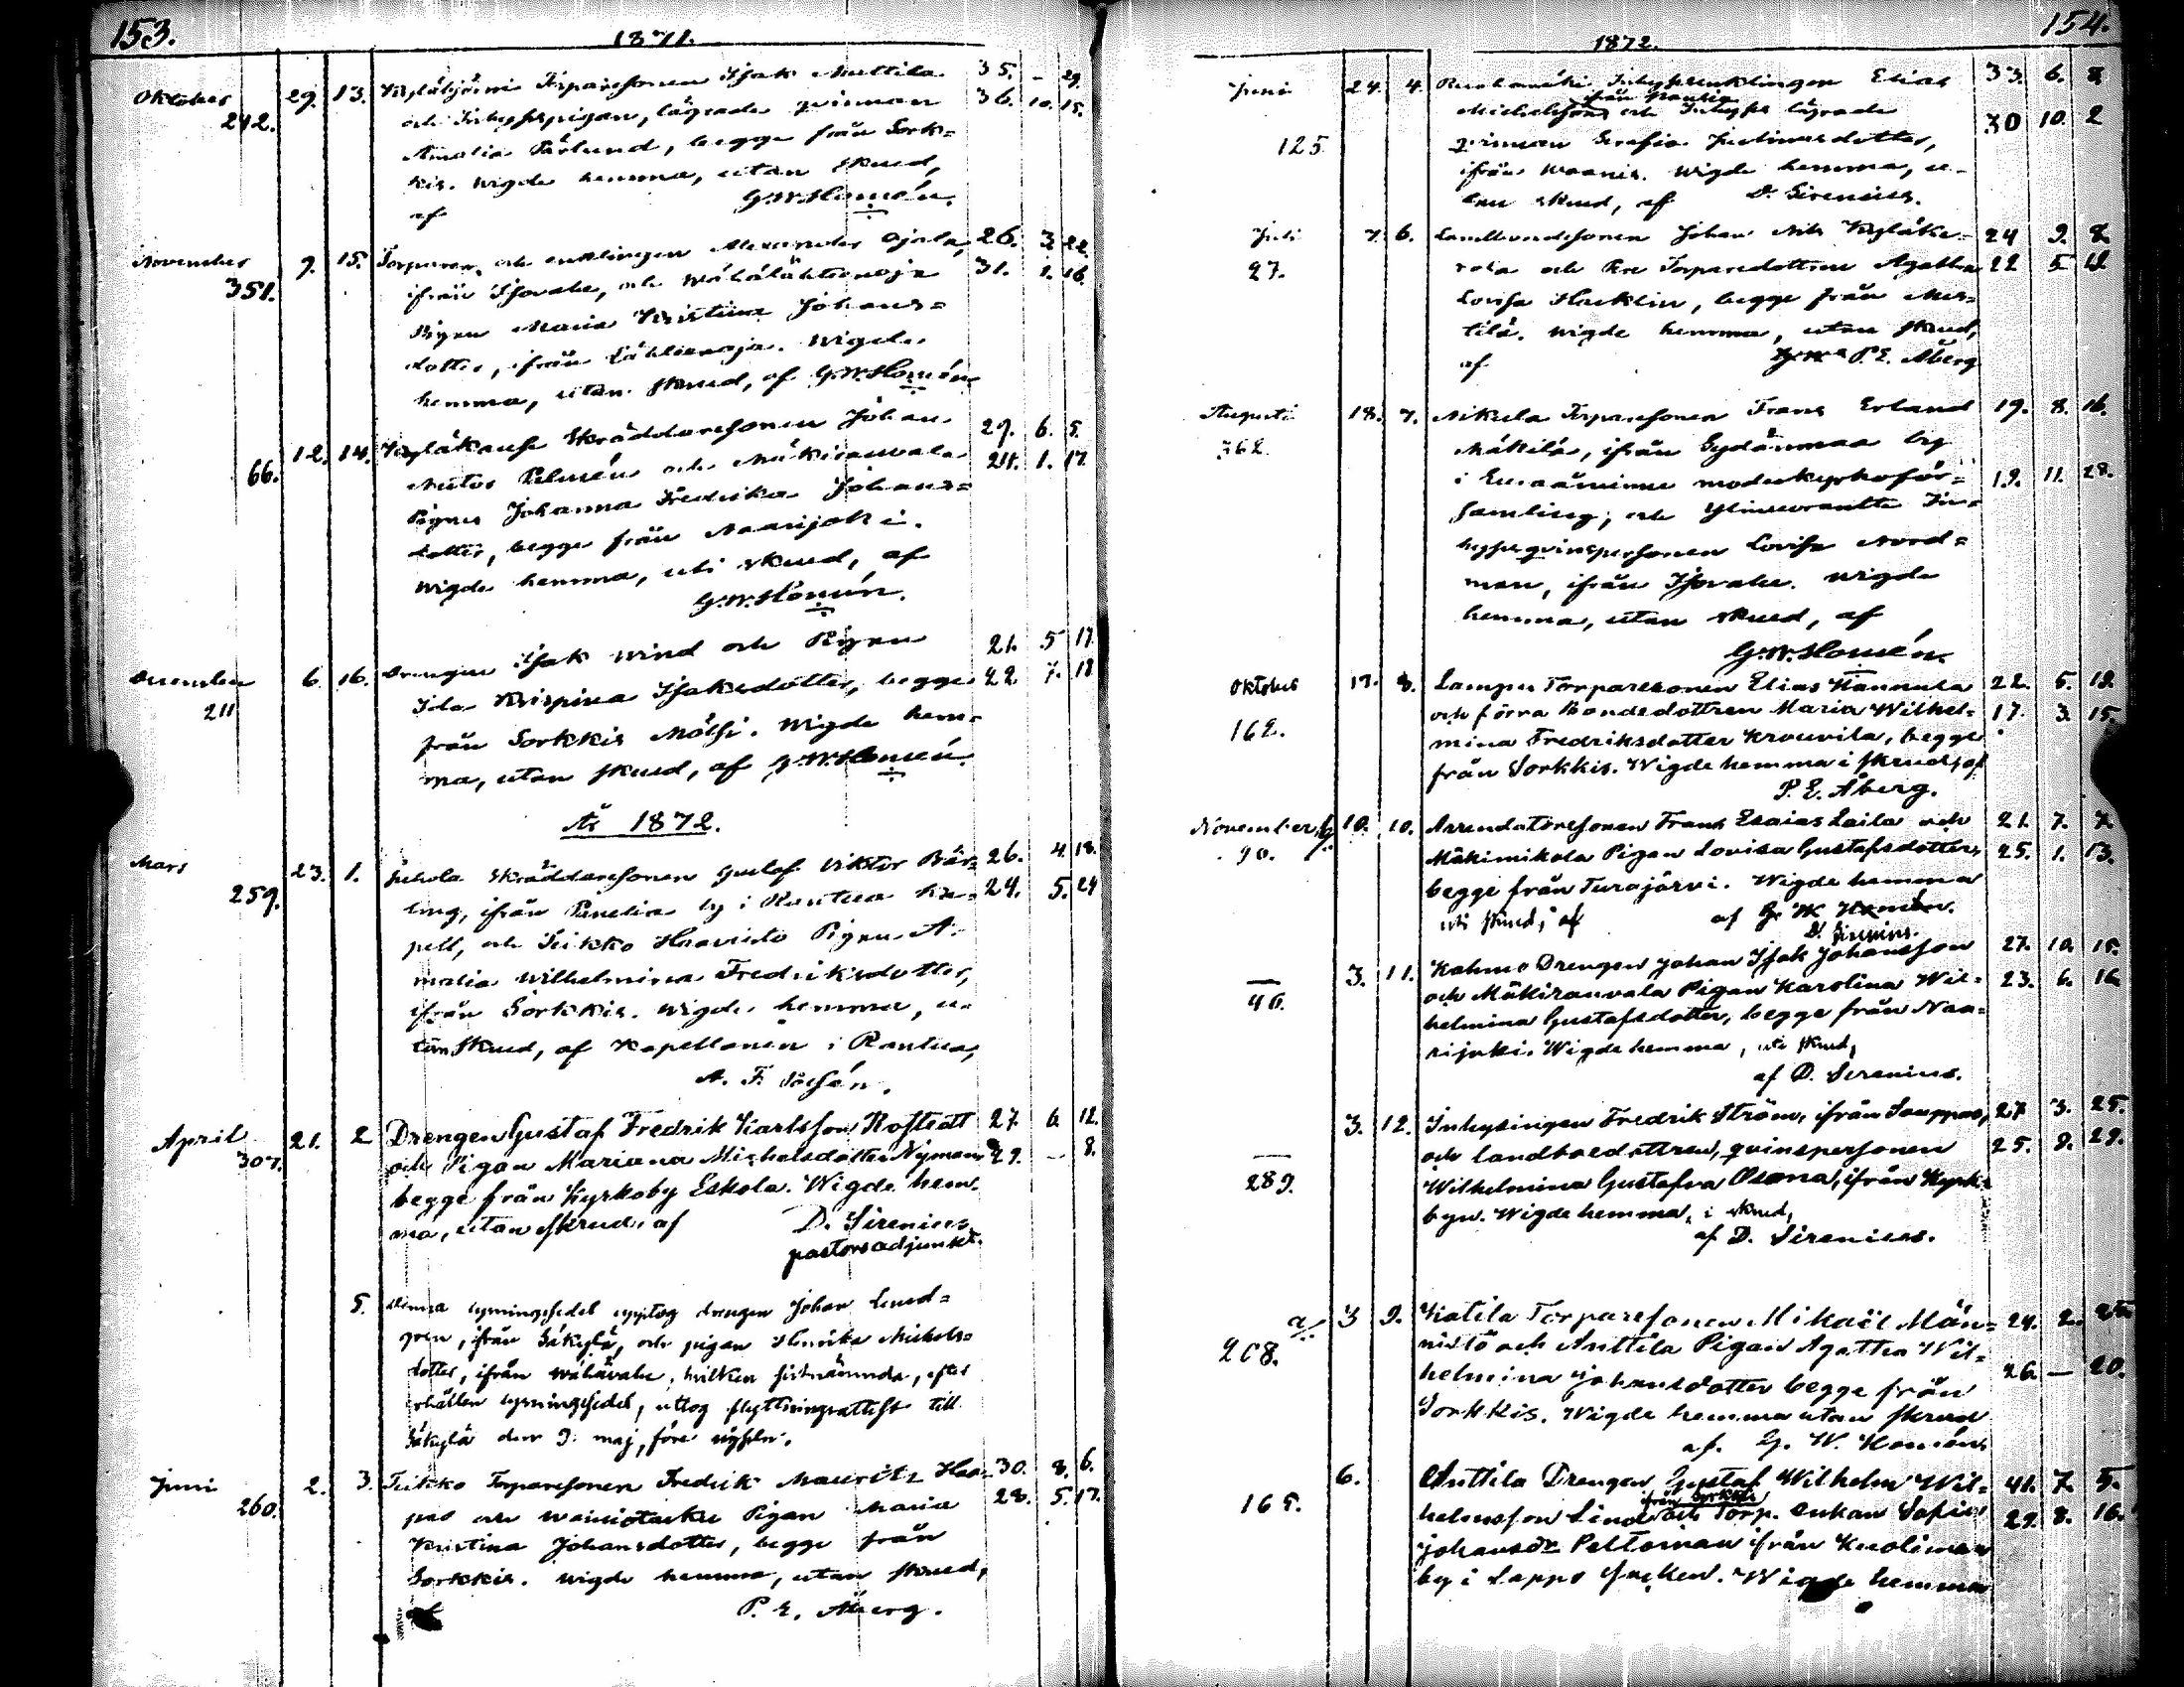 153.
1871.
Oktober 29. 13. Yrjäkjärvi Torparesonen Isak Anttila 35. – 29.
242. och Inhysespigan, lägrade qvinnan 36. 10. 15.
Amalia Pärlund, begge från Sork=
kis. Wigde hemma, utan skrud,
af G.W. Homén.
November 9. 15. Torparen och enklingen Alexander Ojala, 26. 3. 22.
351. ifrån Isovahe, och 31. 1. 16.
Pigan Maria Kristina Johans=
dotter, ifrån Wigde
hemma, utan skrud, af G.W. Homén
12. 14. Skräddaresonen Johan 29. 6. 5.
66. och Mäkirauvala 24. 1. 17.
Pigan Johanna Fredrika Johans=
dotter, begge från Naarijoki.
Wigde hemma, uti skrud, af
G.W. Homén.
December 6. 16. Drengen Isak Wind och Pigan 21. 5. 17.
211 Ida Krispina Isaksdotter, begge 22. 7. 18
från Sorkkis Mölsi. Wigde hem=
ma, utan skrud, af G.W. Homén
År 1872.
Mars 23. 1. Skräddaresonen Gustaf Viktor Bär= 26. 4. 18.
259. ling, ifrån Panelia by i Kiu- 24. 5. 24
pell, och Teikko Haavisto Pigan A=
malia Wilhelmina Fredriksdotter,
ifrån Sorkkis. Wigde hemma, u=
tan skrud, af Kapellanen i
A. F.
April 21. 2 Drengen Gustaf Fredrik Karlsson Rostedt 27. 6. 12.
307. och Pigan Mariana Michelsdotter Nyman 29. – 8.
begge från Kyrkoby Eskola. Wigde hem=
ma, utan skrud, af D. Sirenius,
pastorsadjunkt.
5. Denna lysningssedel upptog drengen Johan Lund=
gren, ifrån Säkylä, och pigan Henrika Michels=
dotter, ifrån Wähävahe, hvilken sistnämnda, efter
erhållen lysningssedel, uttog flyttningsattest till
Säkylä den 9. maj, före vigseln.
Juni 2. 3. Teikko Torparesonen Fredrik Mauritz Haa= 30. 8. 6.
260. pas och Wainiotaskre Pigan Maria 28. 5. 17.
Kristina Johansdotter, begge från
Sorkkis. Wigde hemma, utan skrud,
af P. E. Åberg.
154.
1872.
Juni 24. 4. Inhysesenklingen Elias 33. 6. 8.
från
Michelsson och Inhyses lägrade 30 10. 2
125. qvinnan Serafia Justinasdotter,
ifrån Wigde hemma, u-
tan skrud, af D. Sirenius.
Juli 7. 6. Landbondesonen Johan Nils Yrjäke= 24 9. 8.
27. rola och Torparedottren Agatha 22 5 12
Lovisa Hacklin, begge från Mes=
tilä. Wigde hemma, utan skrud,
af P. E. Åberg
Augusti 18. 7. Nikula Torparesonen Frans Erland 19. 8. 16.
362. Mäkilä, ifrån Sydänmaa by
i Euraåminne moderkyrkoför= 19. 11. 28.
samling, och In=
hysesqvinspersonen Lovisa Nord=
man, ifrån Isovahe. Wigde
hemma, utan skrud, af
G.W. Homén.
Oktober 17. 8. Lampu Torparesonen Elias Hannula 22. 5. 12
och förra Bondedottren Maria Wilhel= 17. 3. 15.
162. mina Fredriksdotter Krouvila, begge
från Sorkkis. Wigde hemma i skrud, af
P. E. Åberg.
November 10. 10. Arrendatoresonen Frans Esaias Laila och 21. 7. 7.
90. Mäkimikola Pigan Lovisa Gustafsdotter, 25. 1. 13.
begge från Turajärvi. Wigde hemma
uti skrud, af af G. W. Homén.
D. Sirenius.
— 3. 11. Kahmo Drengen Johan Isak Johansson 27. 10. 15.
46. och Mäkirauvala Pigan Karolina Wil= 23. 6. 16.
helmina Gustafsdotter, begge från Naa=
rijoki. Wigde hemma, uti skrud,
af D. Sirenius.
3. 12. Inhysingen Fredrik Ström, ifrån Sauppas, 27. 3. 25.
— och landboedottren, qvinspersonen 25. 8. 29.
289. Wilhelmina Gustafva Osona, ifrån Kyrk=
byn. Wigde hemma, i skrud,
af D. Sirenius.
a/ 3 9. Katila Torparesonen Mikaël Män= 24. 2. 25
208. nistö och Anttila Pigan Agatha Wil=
helmina Johansdotter begge från 26 — 20.
Sorkkis. Wigde hemma utan skrud
af. G. W. Homén
6. Anttila Drengen Gustaf Wilhelm Wil= 41. 7. 5.
från Sorkkis
165. helmsson Lind och Torp. enkan Sofia 29. 8. 16.
Johansdr Peltoman ifrån Kuolimaa
by i Lappo socken. Wigde hemma